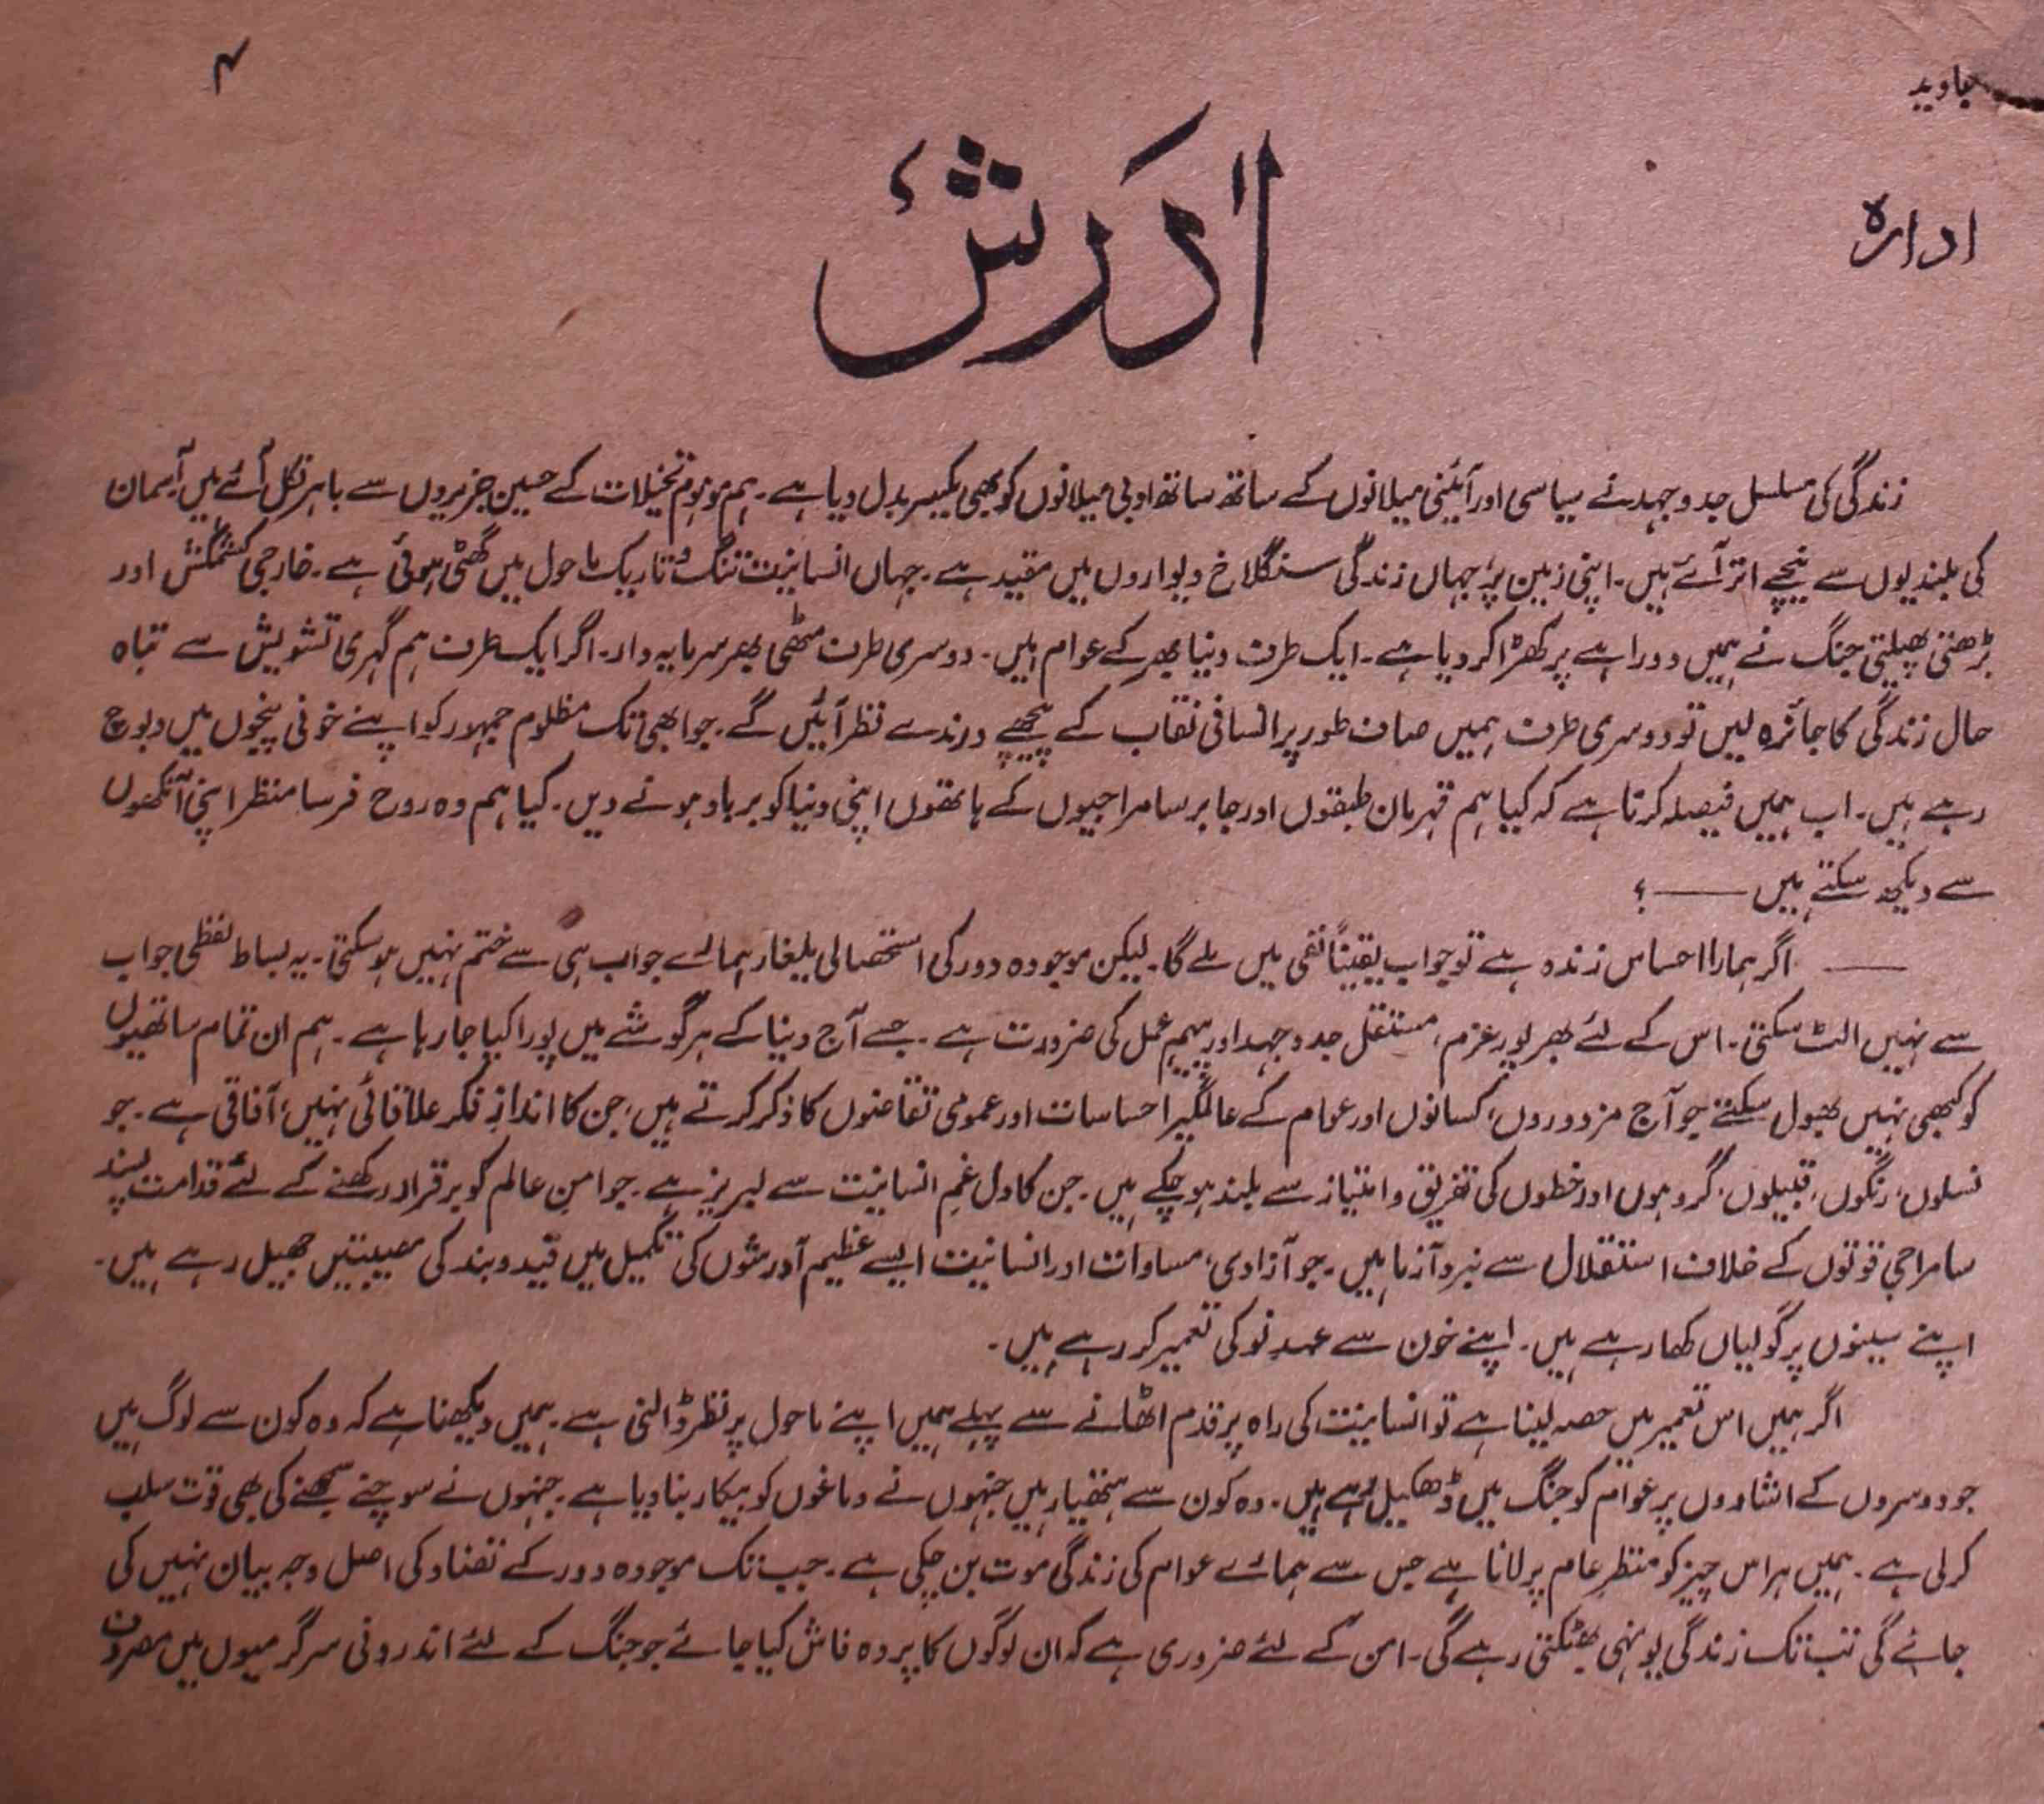 جاوید
۴
ادارہ
ادرش
زندگی کی مسلسل جدوجہد نے سیاسی اور آئینی میلانوں کے ساتھ ساتھ ادبی میلانوں کو بھی یکسر بدل دیا ہے۔ ہم موہوم تخیلات کے حسین جزیروں سے باہر نکل آئے ہیں آسمان
کی بلندیوں سے نیچے اتر آئے ہیں۔ اپنی زمین پر، جہاں زندگی سنگلاخ دیواروں میں مقید ہے۔ جہاں انسانیت تنگ و تاریک ماحول میں گھٹی ہوئی ہے۔ خارجی کشمکش اور
بڑھتی پھیلتی جنگ نے ہمیں دوراہے پر کھڑا کر دیا ہے۔ ایک طرف دنیا بھر کے عوام ہیں۔ دوسری طرف مٹھی بھر سرمایہ دار۔ اگر ایک طرف ہم گہری تشویش سے تباہ
حال زندگی کا جائزہ لیں تو دوسری طرف ہمیں صاف طور پر انسانی نقاب کے پیچھے درندے نظر آئیں گے۔ جو ابھی تک مظلوم جمہور کو اپنے خونی پنجوں میں دبوچ
رہے ہیں۔ اب ہمیں فیصلہ کرنا ہے کہ کیا ہم قہرمان طبقوں اور جابر سامراجیوں کے ہاتھوں اپنی دنیا کو برباد ہونے دیں۔ کیا ہم وہ روح فرسا منظر اپنی آنکھوں
سے دیکھ سکتے ہیں ——؟
—— اگر ہمارا احساس زندہ ہے تو جواب یقیناً نفی میں ملے گا۔ لیکن موجودہ دور کی استحصالی یلغار ہمارے جواب ہی سے ختم نہیں ہو سکتی۔ یہ بساط لفظی جواب
سے نہیں الٹ سکتی۔ اس کے لئے بھرپور عزم، مستقل جدوجہد اور پیہم عمل کی ضرورت ہے۔ جسے آج دنیا کے ہر گوشے میں پورا کیا جا رہا ہے۔ ہم ان تمام ساتھیوں
کو کبھی نہیں بھول سکتے جو آج مزدوروں، کسانوں اور عوام کے عالمگیر احساسات اور عمومی تقاضوں کا ذکر کرتے ہیں، جن کا اندازِ فکر علاقائی نہیں، آفاقی ہے۔ جو
نسلوں، رنگوں، قبیلوں، گروہوں اور خطوں کی تفریق و امتیاز سے بلند ہو چکے ہیں۔ جن کا دل غمِ انسانیت سے لبریز ہے۔ جو امنِ عالم کو برقرار رکھنے کے لئے قدامت پسند
سامراجی قوتوں کے خلاف استقلال سے نبرد آزما ہیں۔ جو آزادی، مساوات اور انسانیت ایسے عظیم آدرشوں کی تکمیل میں قید و بند کی مصیبتیں جھیل رہے ہیں۔
اپنے سینوں پر گولیاں کھا رہے ہیں۔ اپنے خون سے عہدِ نو کی تعمیر کر رہے ہیں۔
اگر ہمیں اس تعمیر میں حصہ لینا ہے تو انسانیت کی راہ پر قدم اٹھانے سے پہلے ہمیں اپنے ماحول پر نظر ڈالنی ہے۔ ہمیں دیکھنا ہے کہ وہ کون سے لوگ ہیں
جو دوسروں کے اشاروں پر عوام کو جنگ میں ڈھکیل رہے ہیں۔ وہ کون سے ہتھیار ہیں جنہوں نے دماغوں کو بیکار بنا دیا ہے۔ جنہوں نے سوچنے سمجھنے کی بھی قوت سلب
کر لی ہے۔ ہمیں ہر اس چیز کو منظرِ عام پر لانا ہے جس سے ہمارے عوام کی زندگی موت بن چکی ہے۔ جب تک موجودہ دور کے تضاد کی اصل وجہ بیان نہیں کی
جائے گی تب تک زندگی یونہی بھٹکتی رہے گی۔ امن کے لئے ضروری ہے کہ ان لوگوں کا پردہ فاش کیا جائے جو جنگ کے لئے اندرونی سرگرمیوں میں مصروف